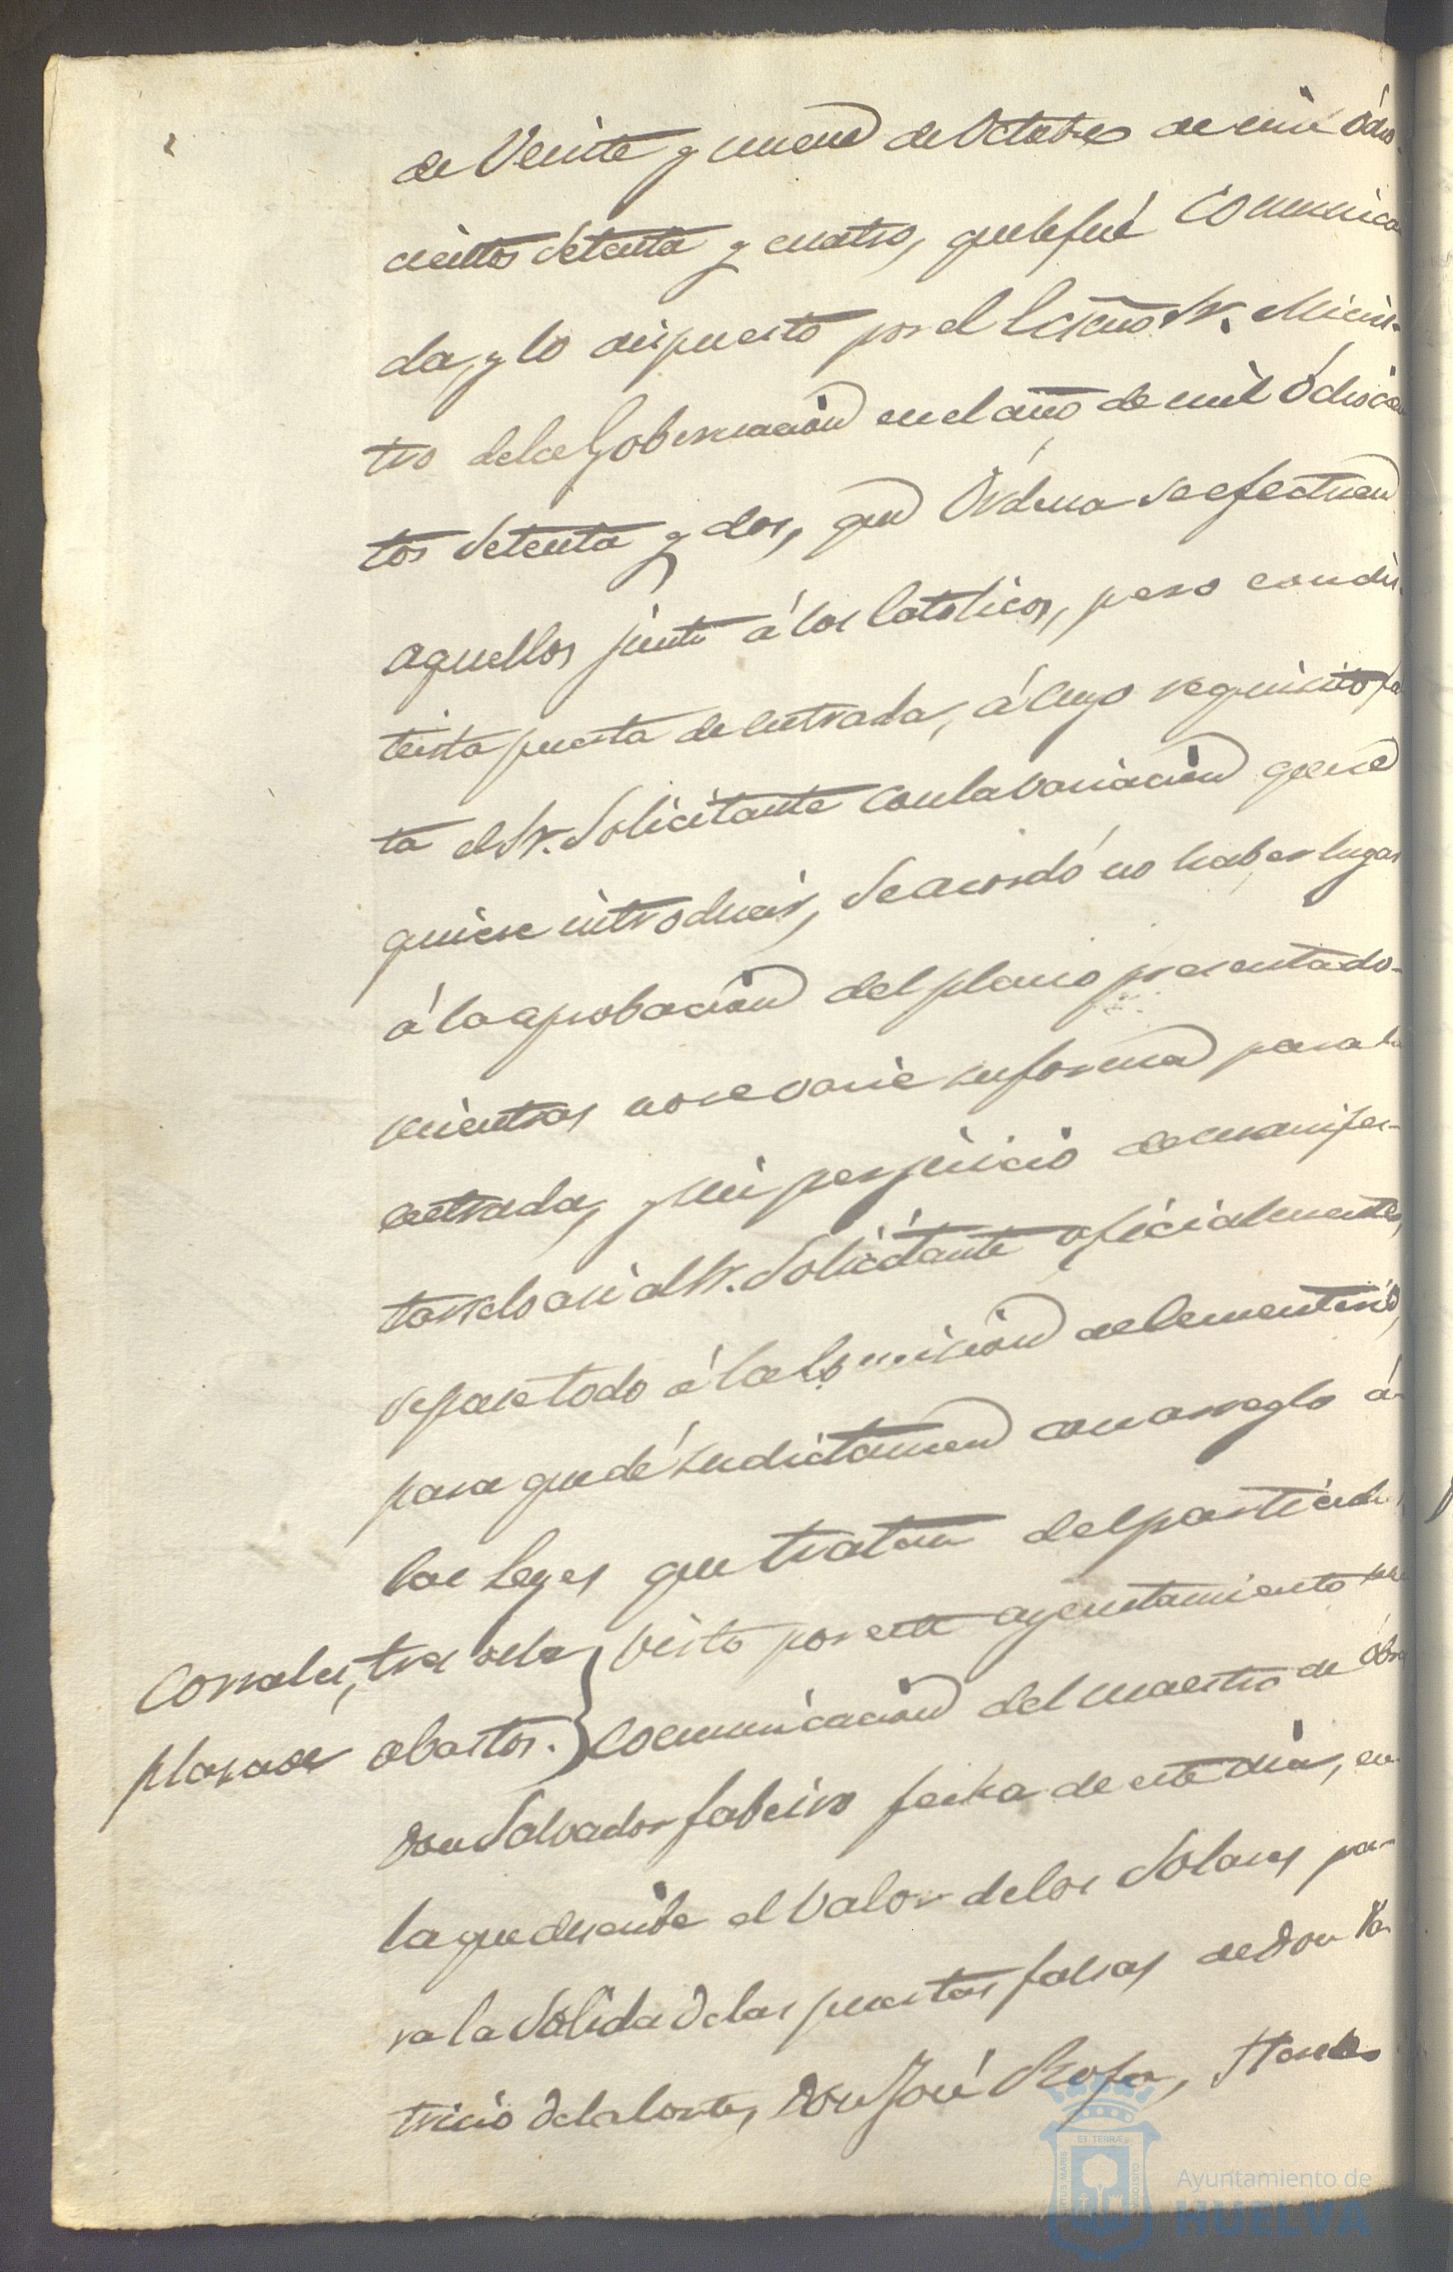 de Veinte y nueve de Octubre de mil Ocho-
cientos Setenta y cuatro, que le fué Comunica
da, y lo dispuesto por el Ecsmo Sr. Minis-
tro de la Gobernacion en el año de mil Ochocien
tos Setenta y dos, que Ordena se efectuen
aquellos junto á los Catolicos, pero con dis-
tinta puerta de entrada, á cuyo requisito fa
ta el Sr. Solicitante con la variacion que se
quiere introducir, Se acordó no haber lugar
á la aprobacion del plano presentado-
mientras no se varie su forma para la
entrada, y sin perjuicio de manifes-
tarselo asi al Sr. Solicitante oficialmente,
se pase todo á la Comision de Cementerio,
para que dé su dictamen con arreglo á-
las Leyes que tratan del particular,
Corrales, tras de la } Visto por este ayuntamiento una
plaza de abastos. } Comunicacion del maestro de Obras
Don Salvador Fabeiro fecha de este dia, en
la que describe el Valor de los Solares pa-
ra la Salida de las puertas falsas de Don Pa-
tricio de la Corte, Don José Rofa,
Ayuntamiento de
HUELVA